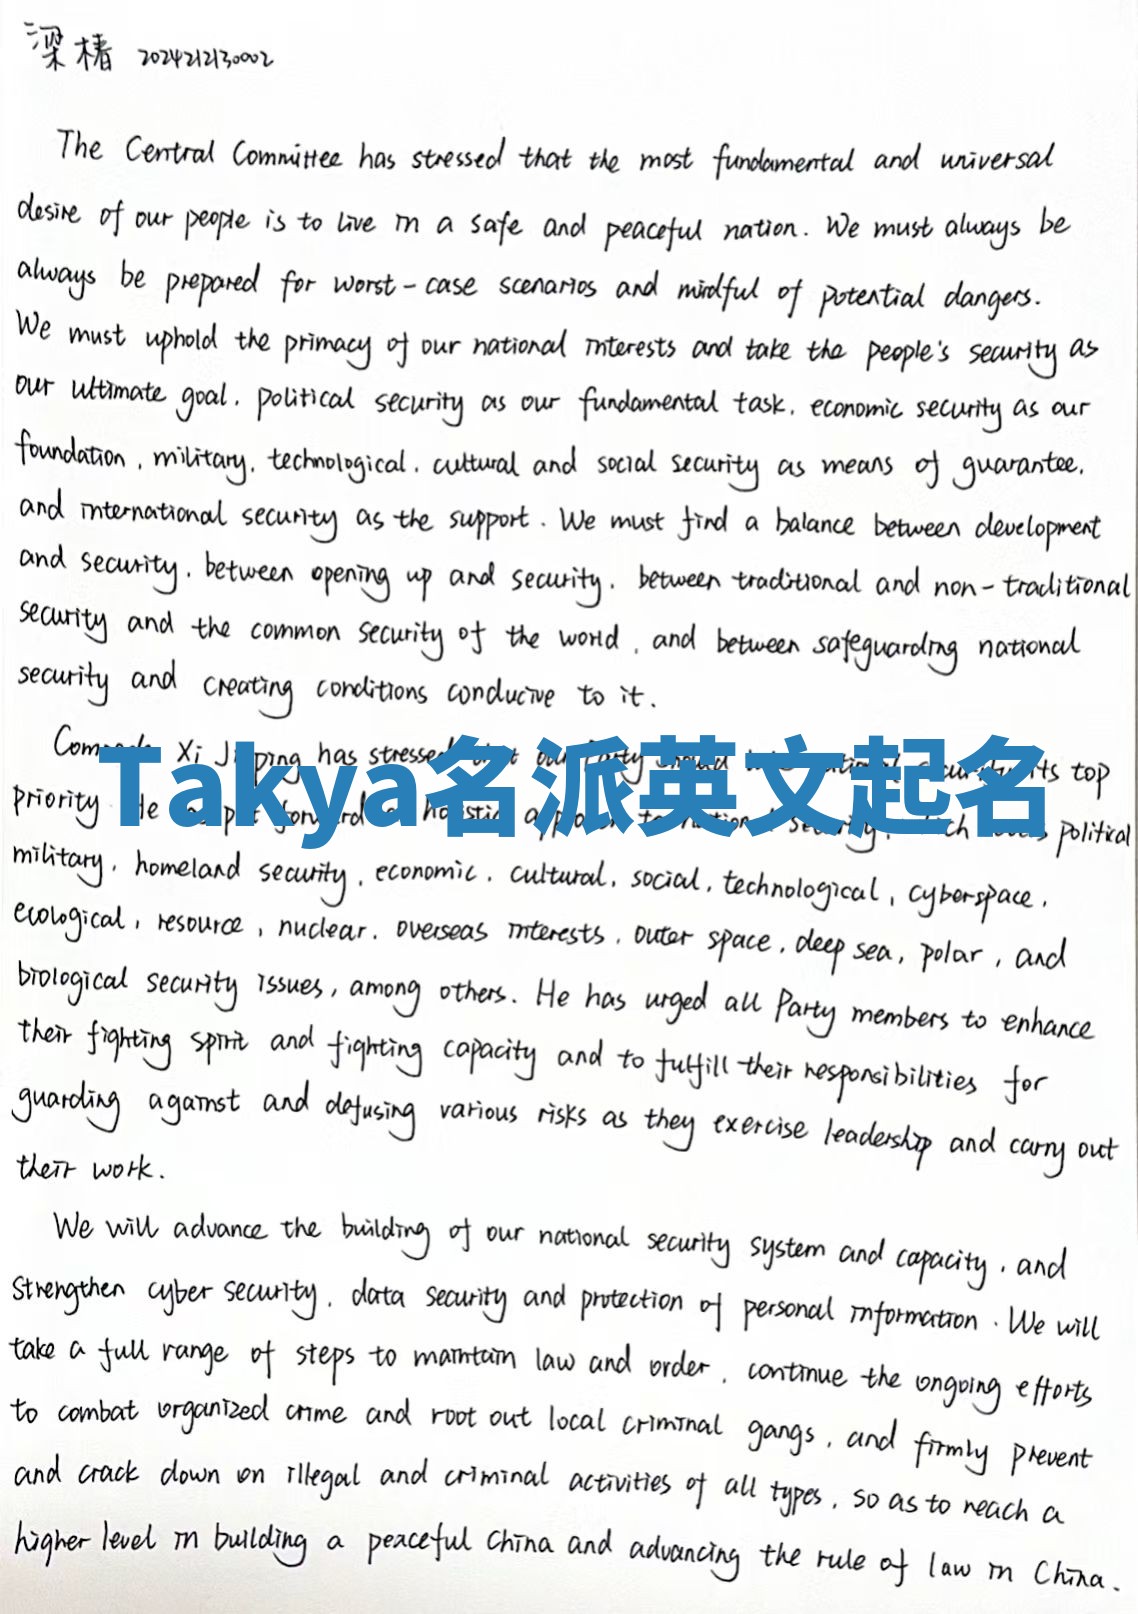 梁椿 2024212130002
The Central Committee has stressed that the most fundamental and universal
desire of our people is to live in a safe and peaceful nation. We must always be
always be prepared for worst-case scenarios and mindful of potential dangers.
We must uphold the primacy of our national interests and take the people's security as
our ultimate goal, political security as our fundamental task, economic security as our
foundation, military, technological, cultural and social security as means of guarantee,
and international security as the support. We must find a balance between development
and security, between opening up and security, between traditional and non-traditional
security and the common security of the world, and between safeguarding national
security and creating conditions conducive to it.
Xi has stressed its top
Takya名派英文起名
priority He political
military, homeland security, economic, cultural, social, technological, cyberspace,
ecological, resource, nuclear, overseas interests, outer space, deep sea, polar, and
biological security issues, among others. He has urged all Party members to enhance
their fighting spirit and fighting capacity and to fulfill their responsibilities for
guarding against and defusing various risks as they exercise leadership and carry out
their work.
We will advance the building of our national security system and capacity, and
strengthen cyber security, data security and protection of personal information. We will
take a full range of steps to maintain law and order, continue the ongoing efforts
to combat organized crime and root out local criminal gangs, and firmly prevent
and crack down on illegal and criminal activities of all types, so as to reach a
higher level in building a peaceful China and advancing the rule of law in China.